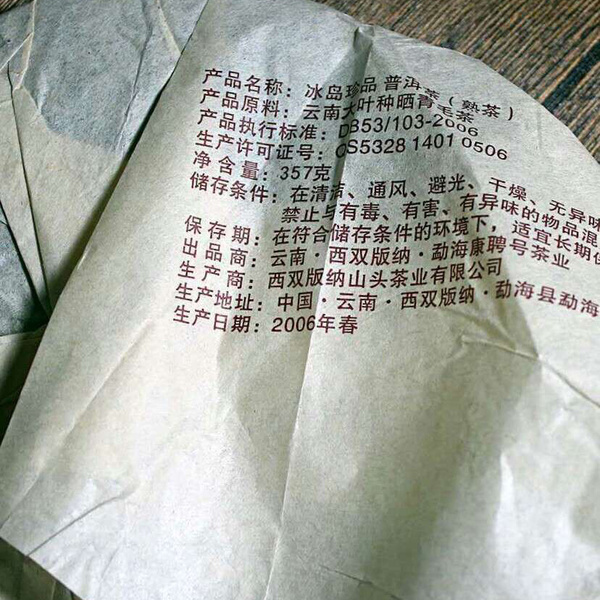 产品名称：冰岛珍品 普洱茶（熟茶）
产品原料：云南大叶种晒青毛茶
产品执行标准：DB53/103-2006
生产许可证号：QS5328 1401 0506
净 含 量：357克
储存条件：在清洁、通风、避光、干燥、无异味
禁止与有毒、有害、有异味的物品混
保 存 期：在符合储存条件的环境下，适宜长期保
出 品 商：云南·西双版纳·勐海康聘号茶业
生 产 商：西双版纳山头茶业有限公司
生产地址：中国·云南·西双版纳·勐海县勐海
生产日期：2006年春